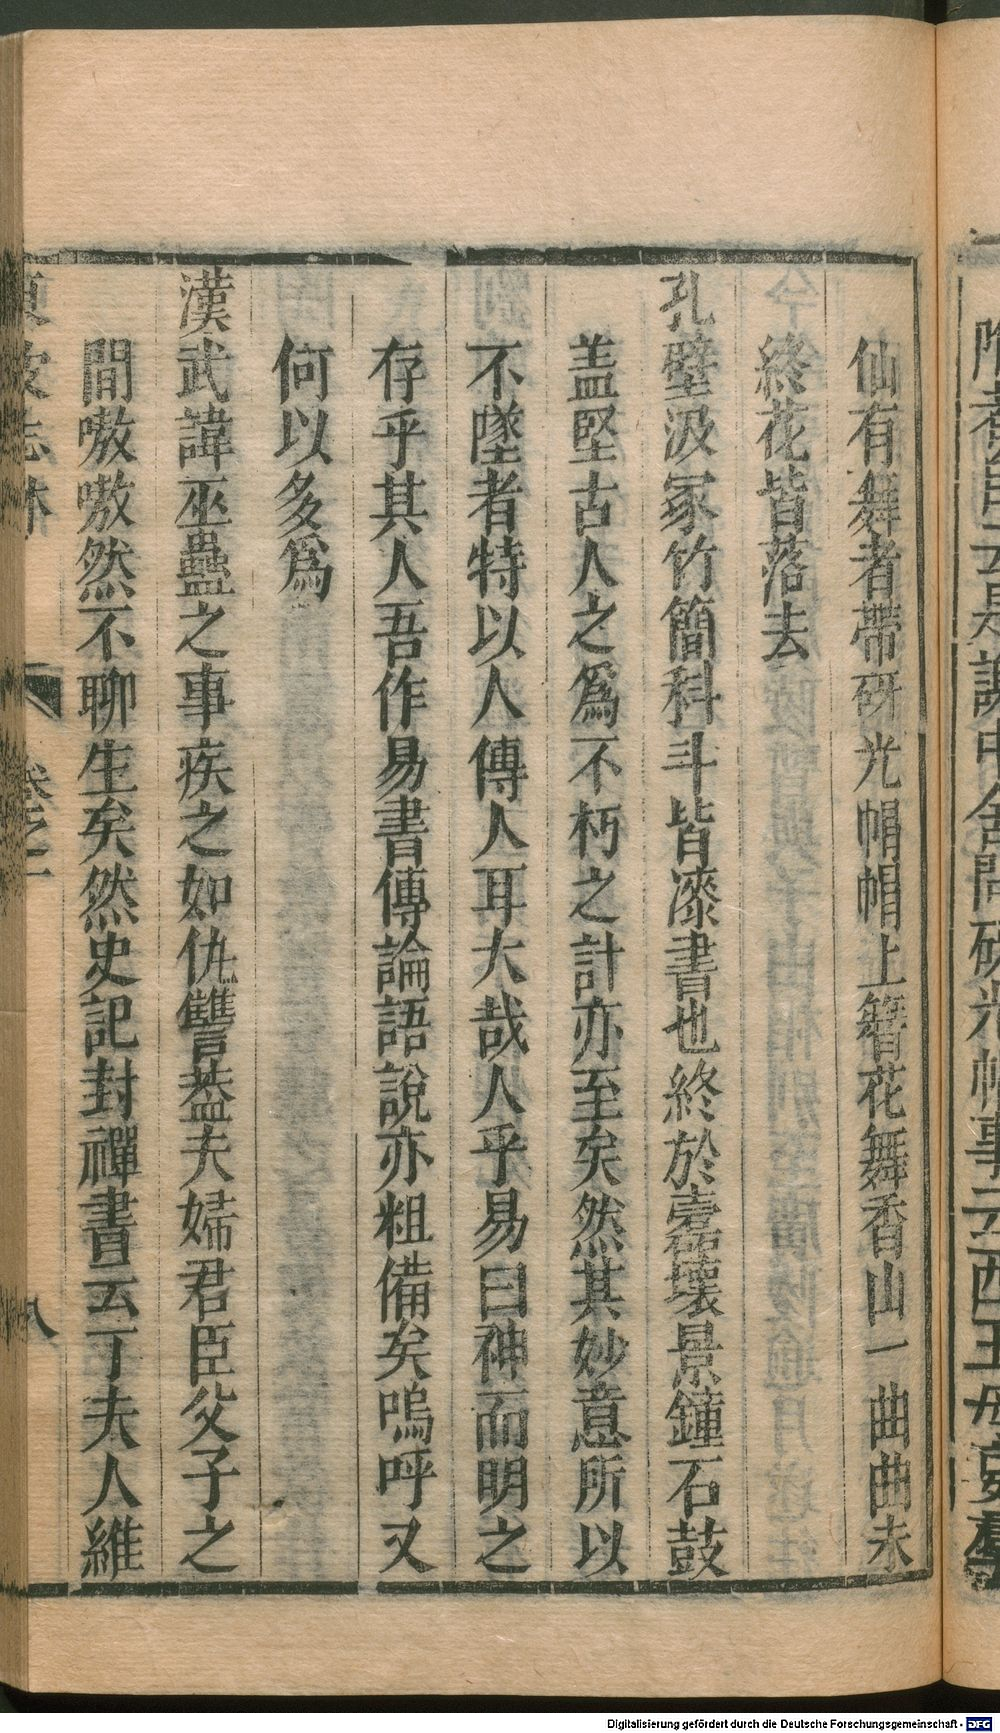 仙有舞者帶硏光帽帽上簪花舞香山一曲曲未
終花皆落去
孔壁汲冢竹簡科斗皆漆書也終於蠹壞景鐘石鼓
盖堅古人之爲不朽之計亦至矣然其妙意所以
不墜者特以人傳人耳大哉人乎易曰神而明之
存乎其人吾作易書傳論語說亦粗備矣嗚呼又
何以多爲
漢武諱巫蠱之事疾之如仇讐葢夫婦君臣父子之
間嗷嗷然不聊生矣然史記封禪書云丁夫人維
東坡志林 卷之二 八
Digitalisierung gefördert durch die Deutsche Forschungsgemeinschaft - DFG